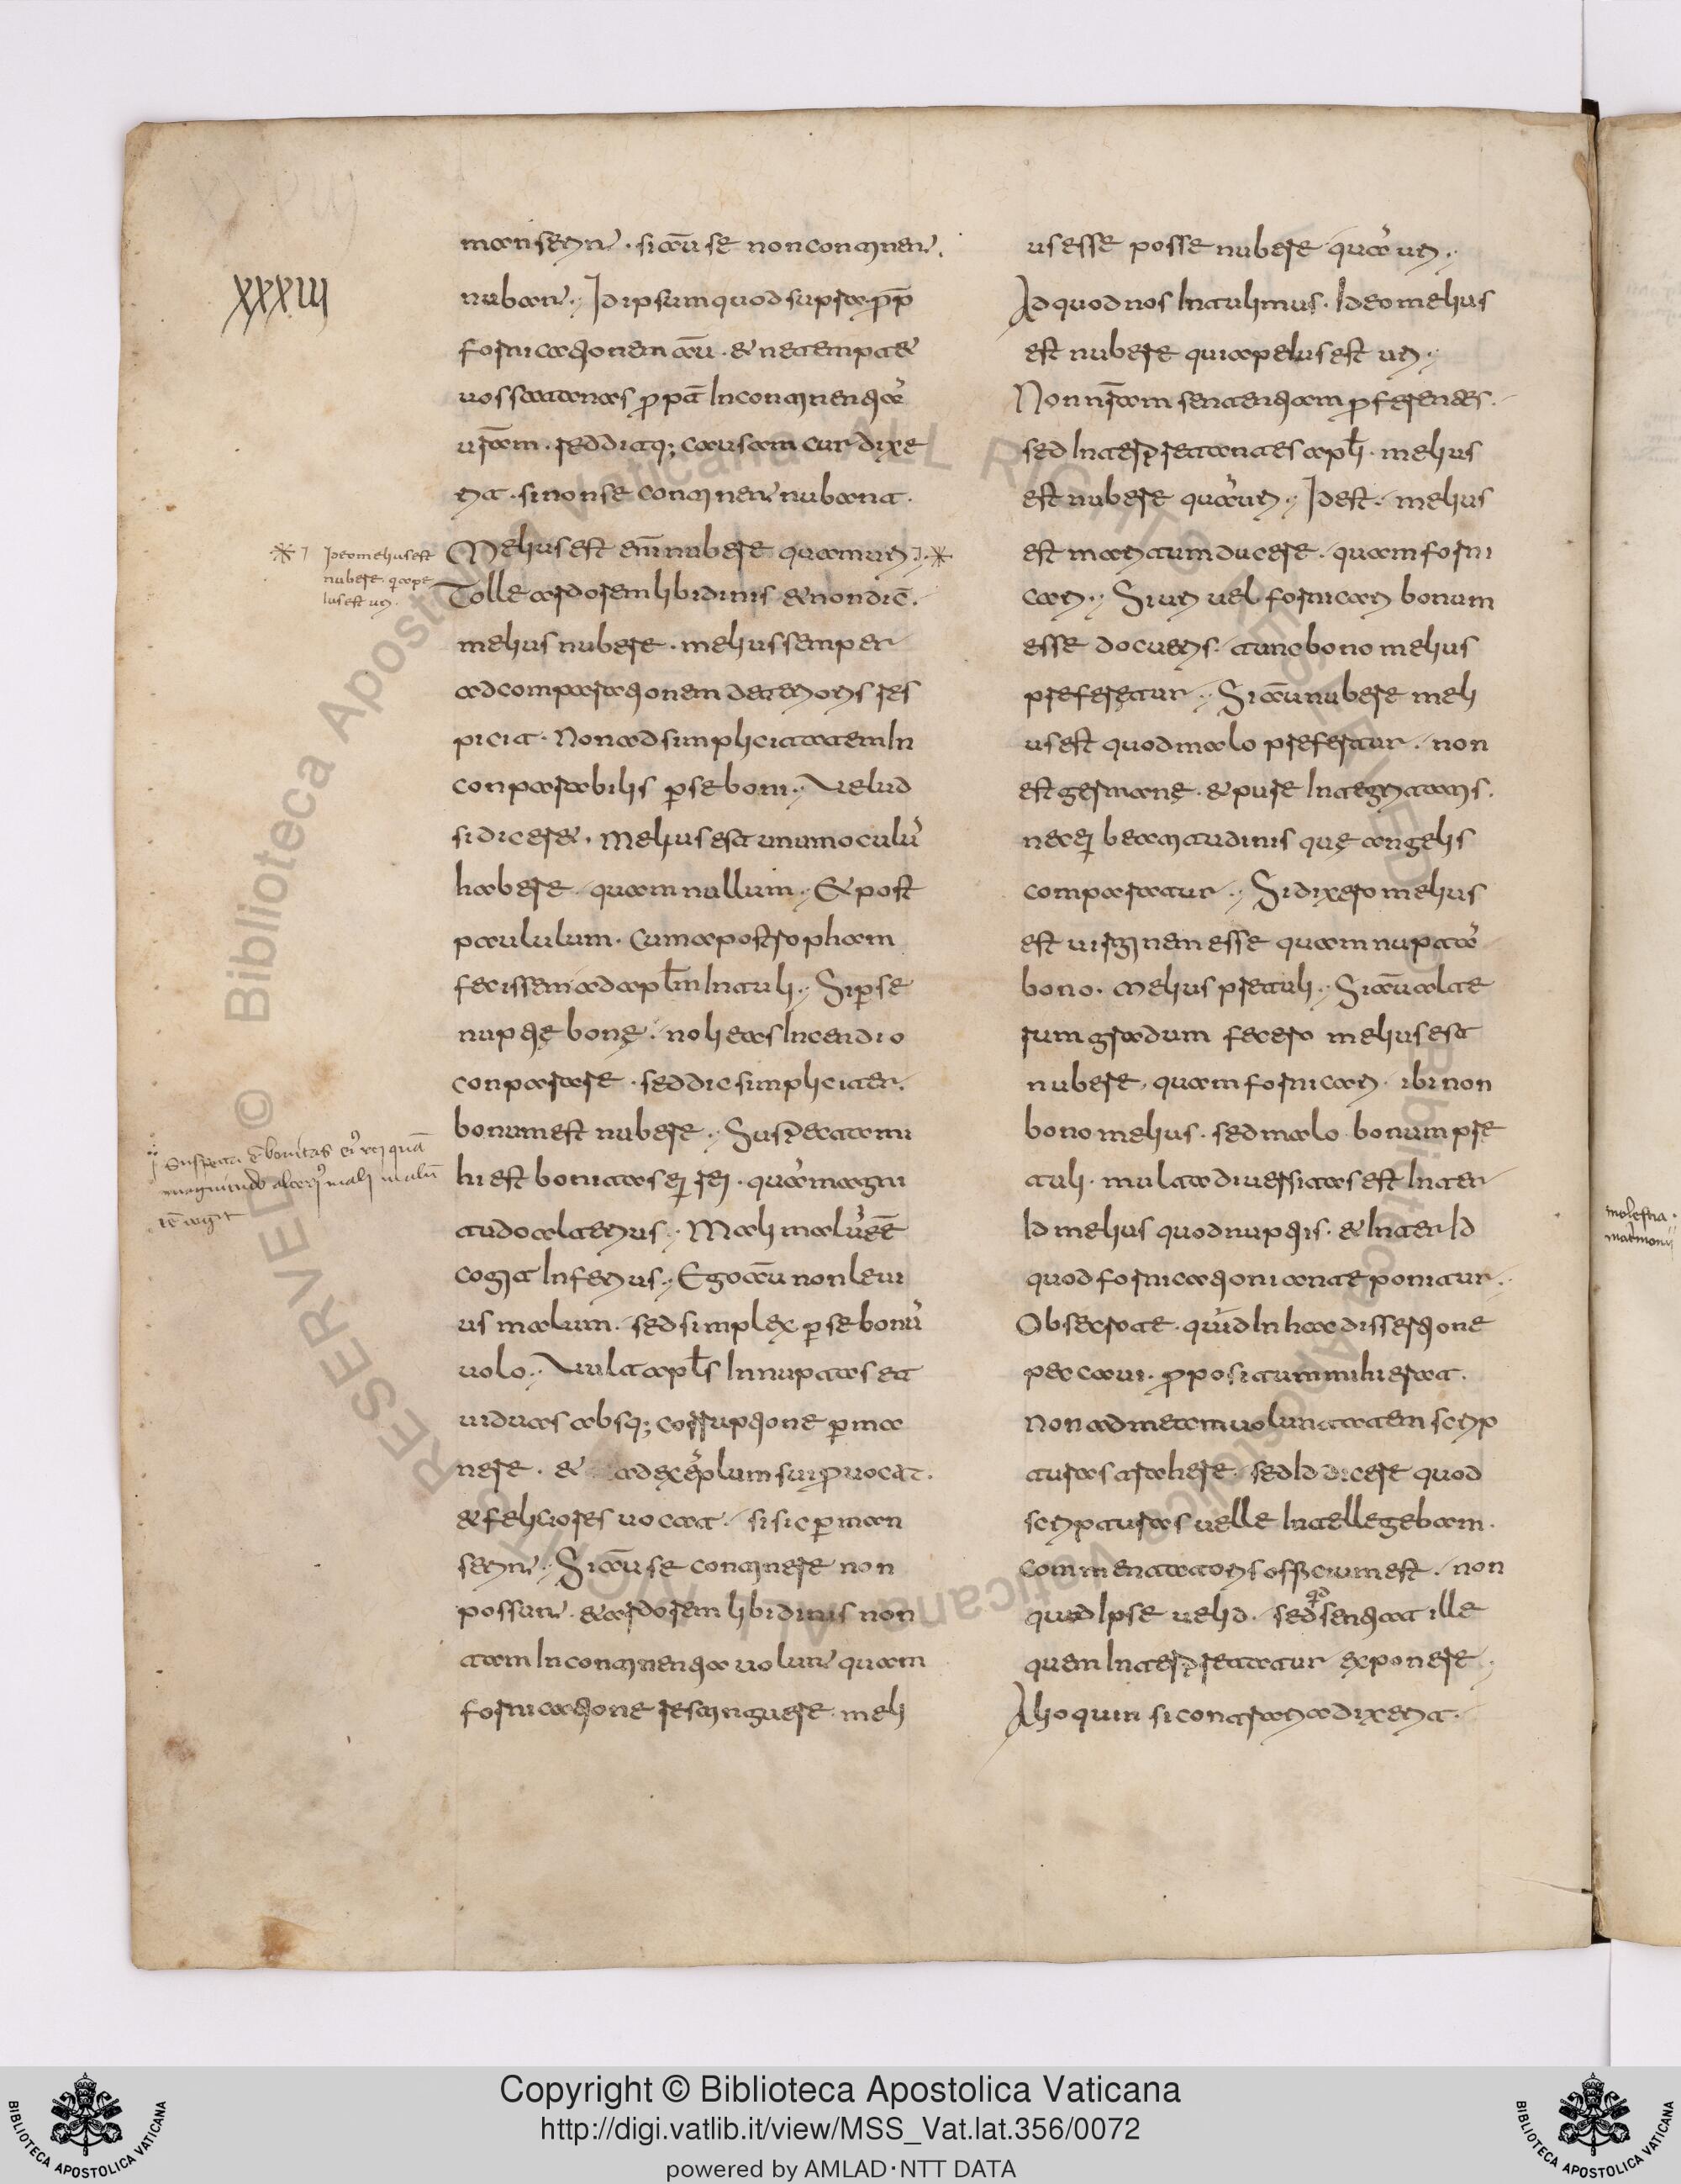 XXXIII
manserint · si aū se non continent ·
nubant ·, Id ipsum quod supra · ppt̄
fornicationem aū · & ne temptet
uos satanas ppt̄ Incontinentiā
ur̄am · redditq; causam cur dixe
rit · si non se continent nubant ·
Melius est enī nubere quam uri ·,·
Tolle ardorem libidinis & non dic̄ ·
melius nubere · melius semper
ad comparationem deterioris res
picit · Non ad simplicitatem In
conparabilis p se boni ·, Uelud
si diceret · Melius est unum oculū
habere · quam nullum ·, Et post
paululum · cum apostropham
fecissem ad apl̄m Intuli ·, Si p se
nuptię bonę · noli eas Incendio
conparare · sed dic simpliciter ·
bonum est nubere ·, Suspecta mi
hi est bonitas ei rei · quā magni
tudo alterius ·, Mali malū eē
cogit Inferius ·, Ego aū non leui
us malum · sed simplex p se bonū
uolo ·, Uult apl̄s Innuptas et
uiduas absq; corruptione pma
nere · & ad exēplum sui puocat ·
& feliciores uocat · si sic pman
serint ·, Si aū se continere non
possunt · & ardorem libidinis non
tam Incontinentia uolunt quam
fornicatione restinguere · meli
us esse posse nubere quā uri ·,
Ad quod nos Intulimus · Ideo melius
est nubere quia peius est uri ·,
Non nr̄am sententiam pferentes ·
sed Interpretantes apl̄i · melius
est nubere quā uri ·, Id est · melius
est maritum ducere · quam forni
cari ·, Si uri uel fornicari bonum
esse docueris · tunc bono melius
preferetur ·, Si aū nubere meli
us est quod malo prefertur · non
est germanę · & purę Integritatis ·
nec ei beatitudinis quę angelis
comparatur ·, Si dixero melius
est uirginem esse quam nuptā
bono · melius pretuli ·, Si aū alte
rum gradum fecero melius est
nubere, quam fornicari · ibi non
bono melius · sed malo bonum pre
tuli · multa diuersitas est Inter
Id melius quod nuptiis · & Inter Id
quod fornicationi anteponitur ·
Obsecro te · quid In hac dissertione
peccaui · ppositum mihi erat ·
Non ad meam uoluntatem scrip
turas trahere · sed Id dicere quod
scripturas uelle Intellegebam ·
Commentatoris officium est · non
quid Ipse uelid · sed qd sentiat ille
quem Interpretatur exponere ·
Alioquin si contraria dixerit ·
Ideo melius est
nubere · q a pe
ius est uri ·
Suspecta ē bonitas eiꝰ rei quā
magnitudo alteriꝰ mali malū
ēē cogit
molestia ·
matrimonij
Copyright © Biblioteca Apostolica Vaticana
http://digi.vatlib.it/view/MSS_Vat.lat.356/0072
powered by AMLAD·NTT DATA
BIBLIOTECA APOSTOLICA VATICANA
BIBLIOTECA APOSTOLICA VATICANA